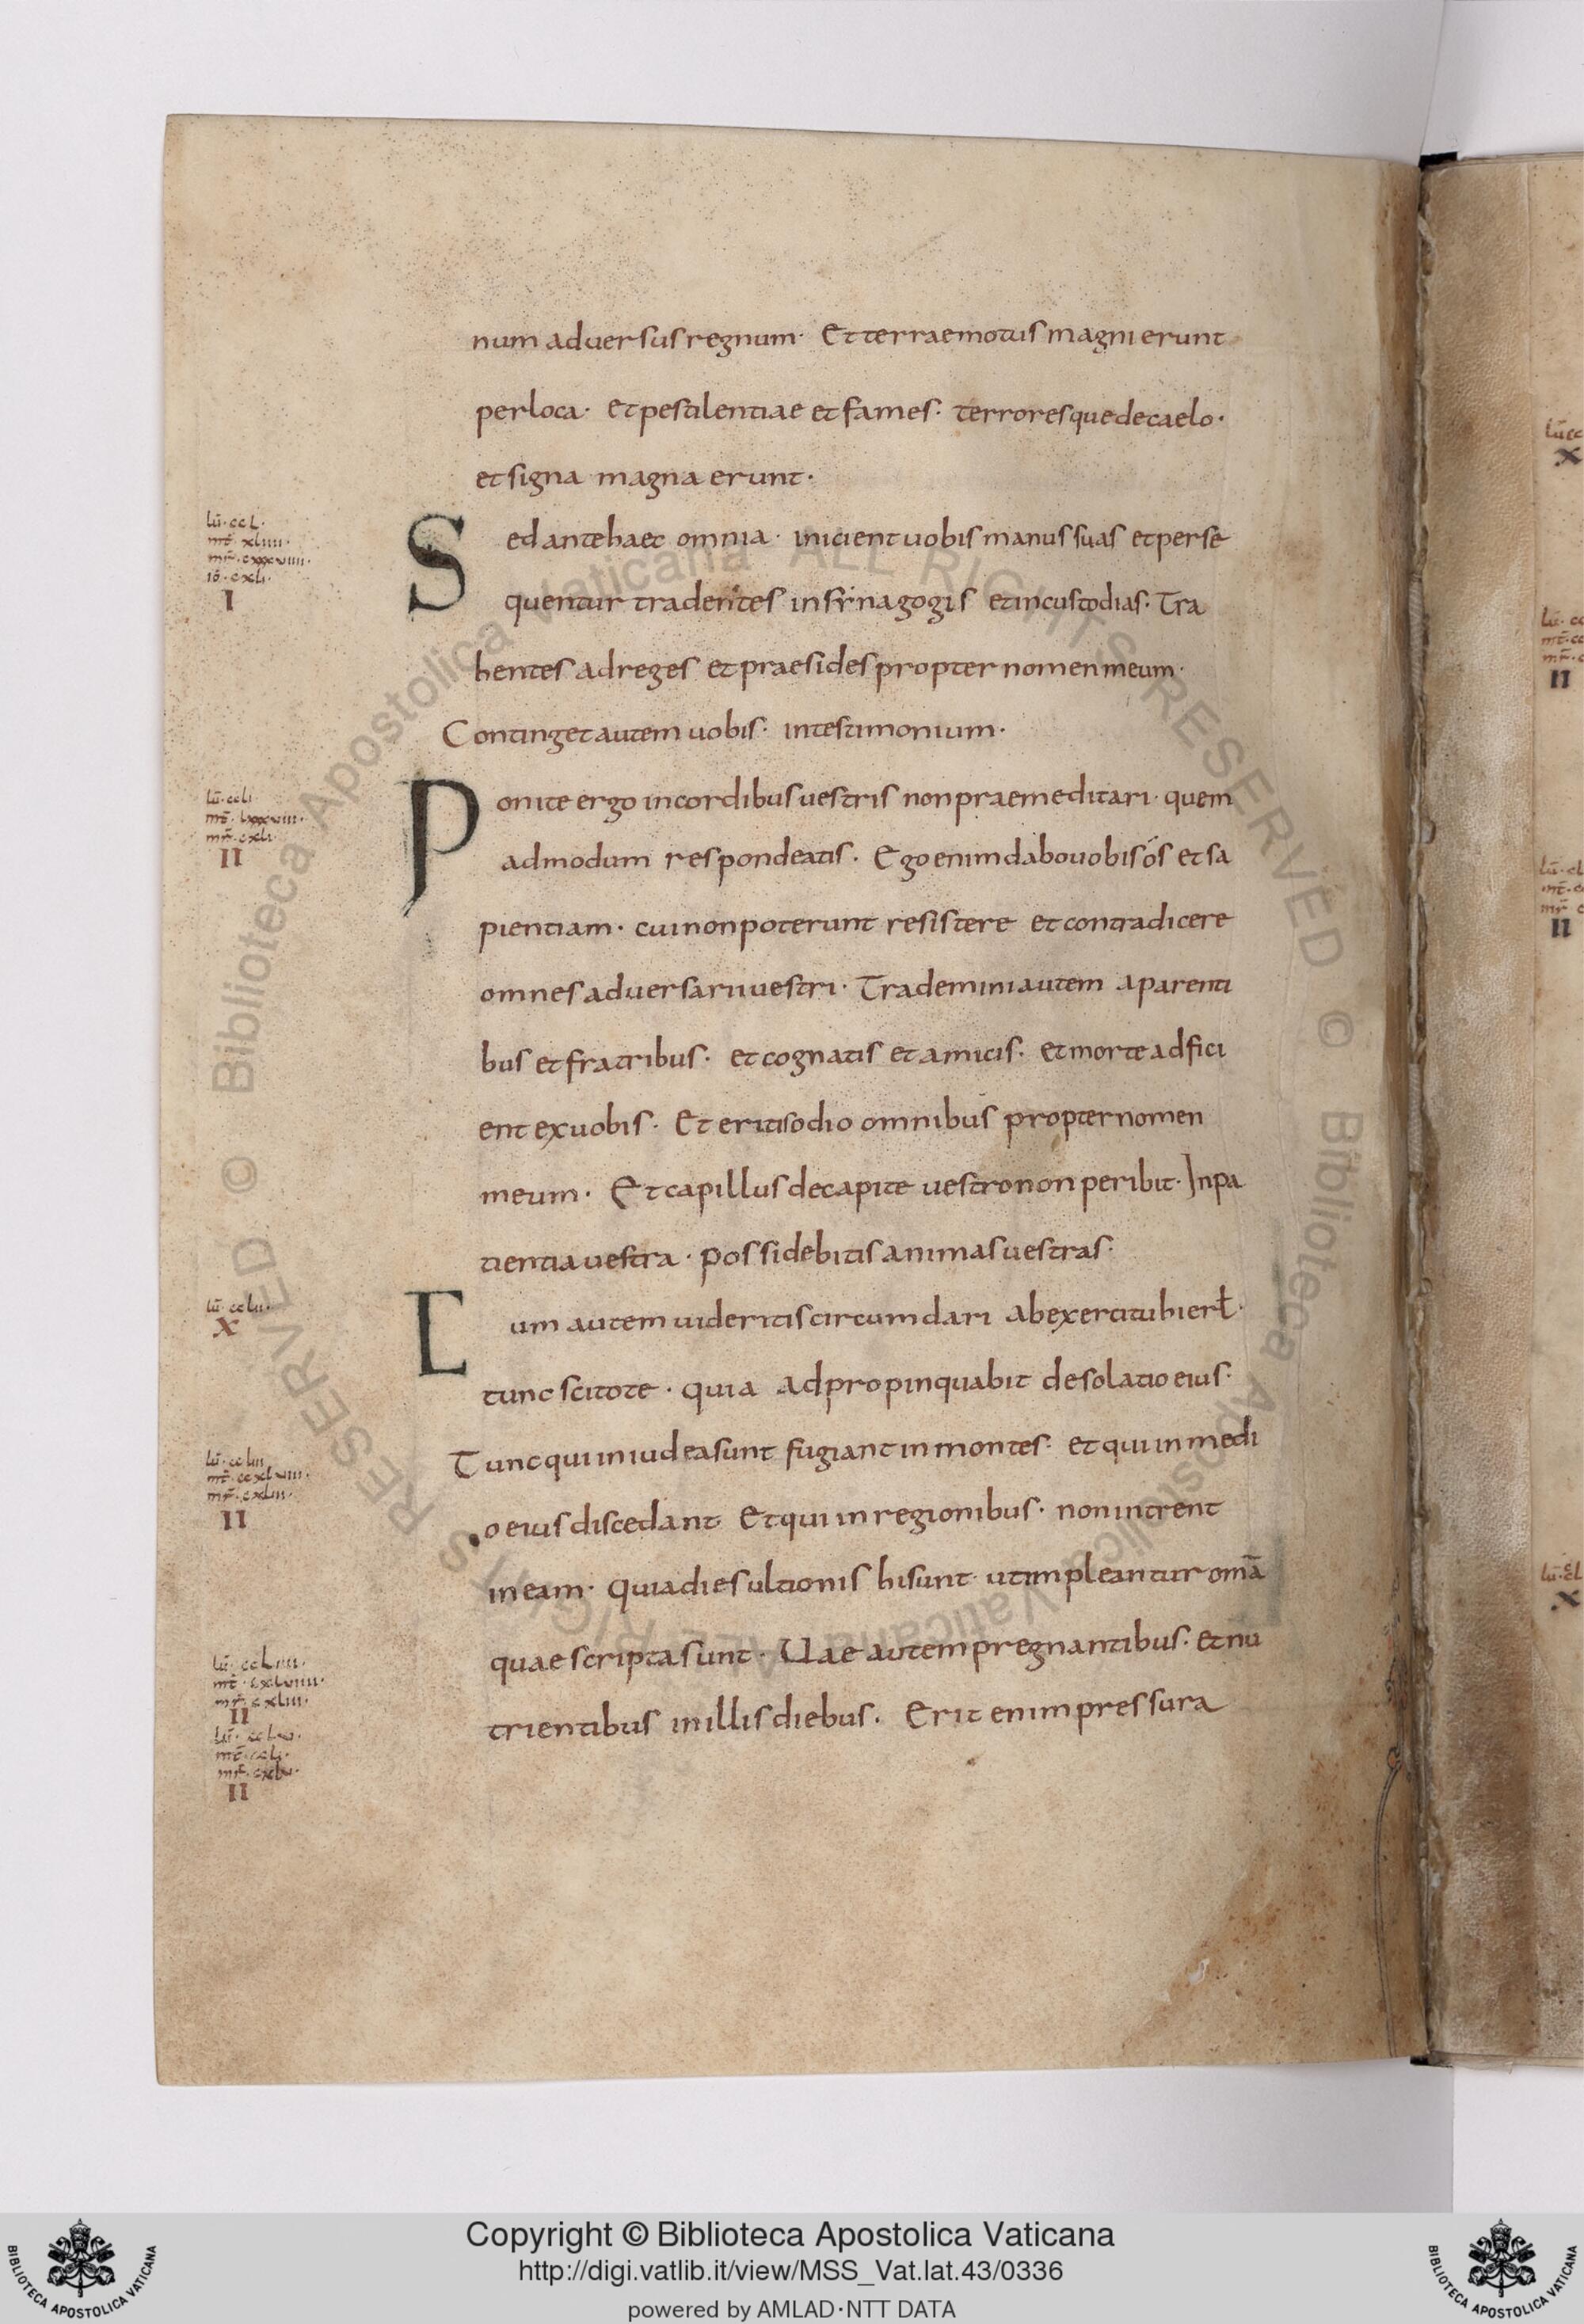 num aduersus regnum· Et terraemotus magni erunt
per loca· et pestilentiae et fames· terroresque de caelo·
et signa magna erunt·
lū·ccL·
mt̄·xliiii·
mr̄·cxxxviiii·
iō·cxli·
I
Sed ante haec omnia· inicient uobis manus suas et perse
quentur tradentes in synagogis et in custodias· Tra
hentes ad reges et praesides propter nomen meum·
Continget autem uobis· in testimonium·
lū·ccli
mt̄·lxxxviii·
mr̄·cxli·
II
Ponite ergo in cordibus uestris non praemeditari· quem
admodum respondeatis· Ego enim dabo uobis ós et sa
pientiam· cui non poterunt resistere et contradicere
omnes aduersarii uestri· Trademini autem a parenti
bus et fratribus· et cognatis et amicis· et morte adfici
ent ex uobis· Et eritis odio omnibus propter nomen
meum· Et capillus de capite uestro non peribit· In pa
tientia uestra· possidebitis animas uestras·
lū·cclii·
X
Cum autem uideritis circumdari ab exercitu hierł·
tunc scitote· quia adpropinquabit desolatio eius·
lū·ccliii
mt̄·ccxlviii·
mr̄·cxliii·
II
Tunc qui in iudea sunt fugiant in montes· et qui in medi
o eius discedant Et qui in regionibus· non intrent
in eam· Quia dies ultionis hi sunt· ut impleantur omā
lū·ccLiiii·
II
quae scripta sunt· Uae autem pregnantibus· et nu
trientibus in illis diebus· Erit enim pressura
II
© Biblioteca Apostolica Vaticana ALL RIGHTS RESERVED © Biblioteca Apostolica Vaticana ALL RIGHTS RESERVED
X
II
II
X
Copyright © Biblioteca Apostolica Vaticana
http://digi.vatlib.it/view/MSS_Vat.lat.43/0336
powered by AMLAD·NTT DATA
BIBLIOTECA APOSTOLICA VATICANA
BIBLIOTECA APOSTOLICA VATICANA